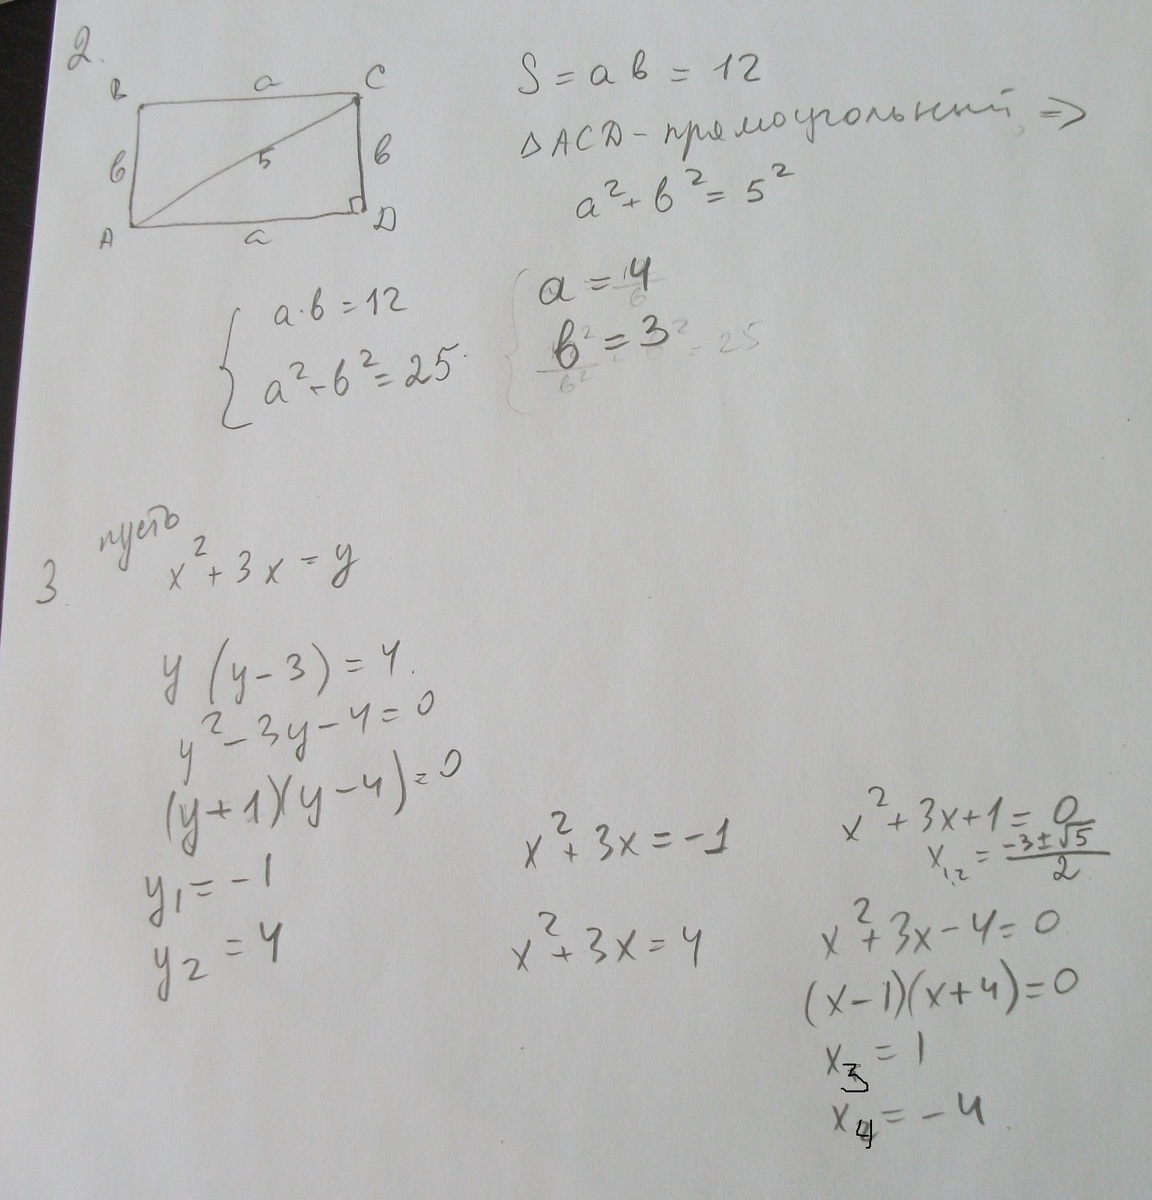 2.
B a C
в 5 в
A a D
S = a в = 12
△ACD - прямоугольный, ⇒
a² + в² = 5²
{ a·в = 12
a² + в² = 25.
{ a = 4
в = 3
3. пусть
x² + 3x = y
y (y - 3) = 4.
y² - 3y - 4 = 0
(y + 1)(y - 4) = 0
y₁ = -1
y₂ = 4
x² + 3x = -1
x² + 3x = 4
x² + 3x + 1 = 0
x₁,₂ = (-3 ± √5) / 2
x² + 3x - 4 = 0
(x - 1)(x + 4) = 0
x₃ = 1
x₄ = -4